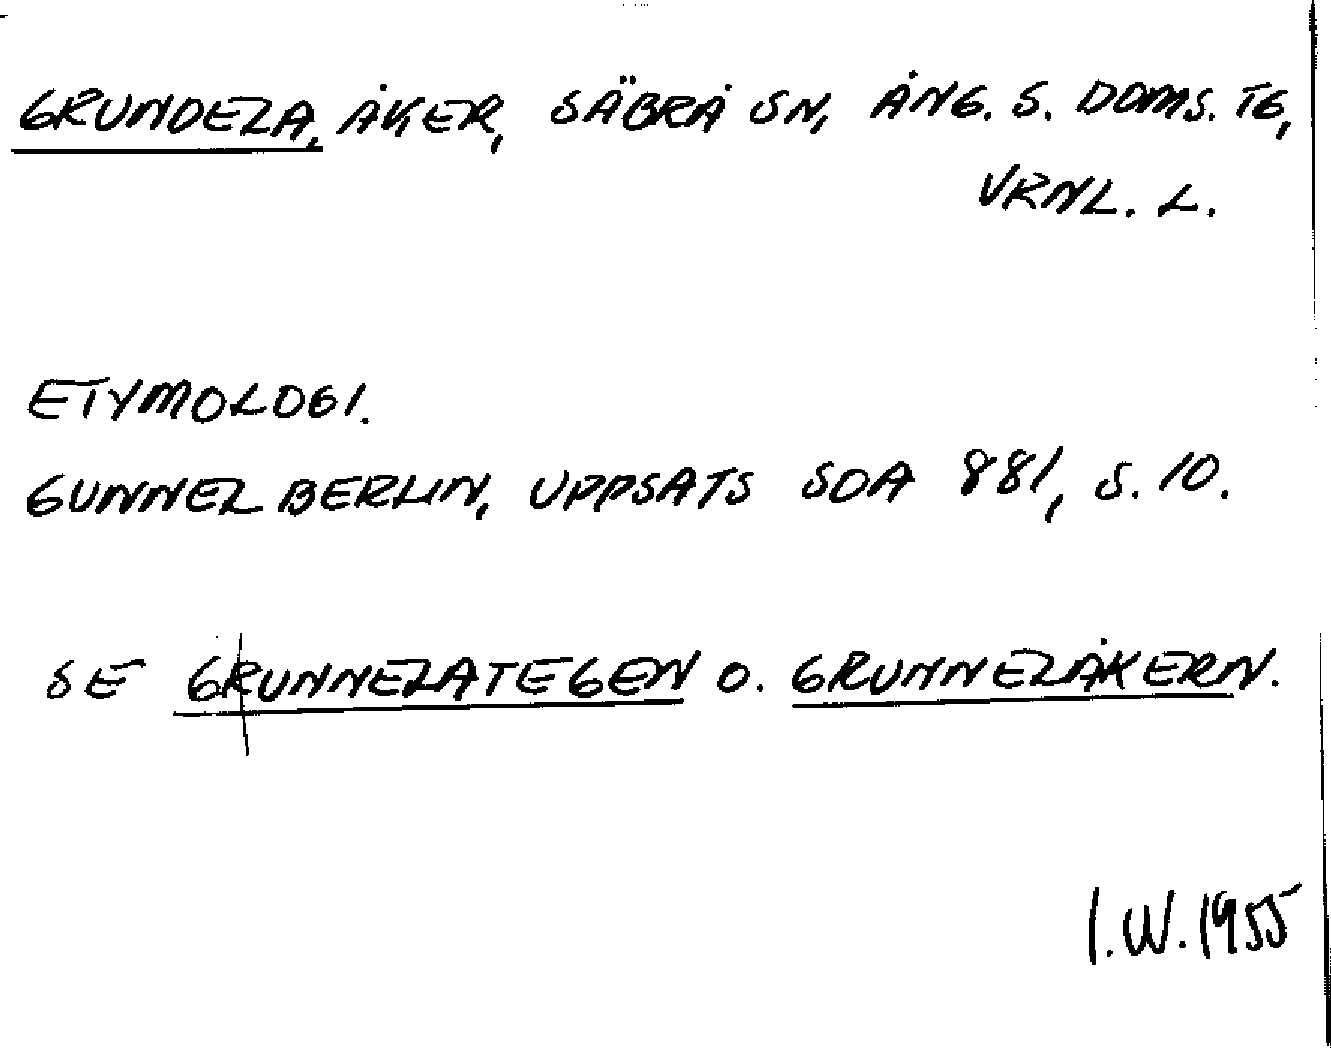 GRUNDELA, ÅKER, SÄBRÅ SN, ÅNG. S. DOMS. TG,
VRNL. L.
ETYMOLOGI.
GUNNEL BERLIN, UPPSATS SOA 881, S. 10.
SE GRUNNELATEGEN O. GRUNNELÅKERN.
I.W. 1955